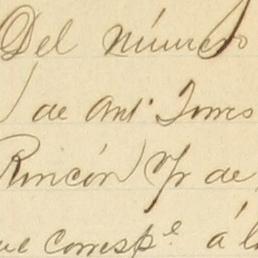 Del número
) de Antº Torres
Rincón) Yr de
ue correspe á l